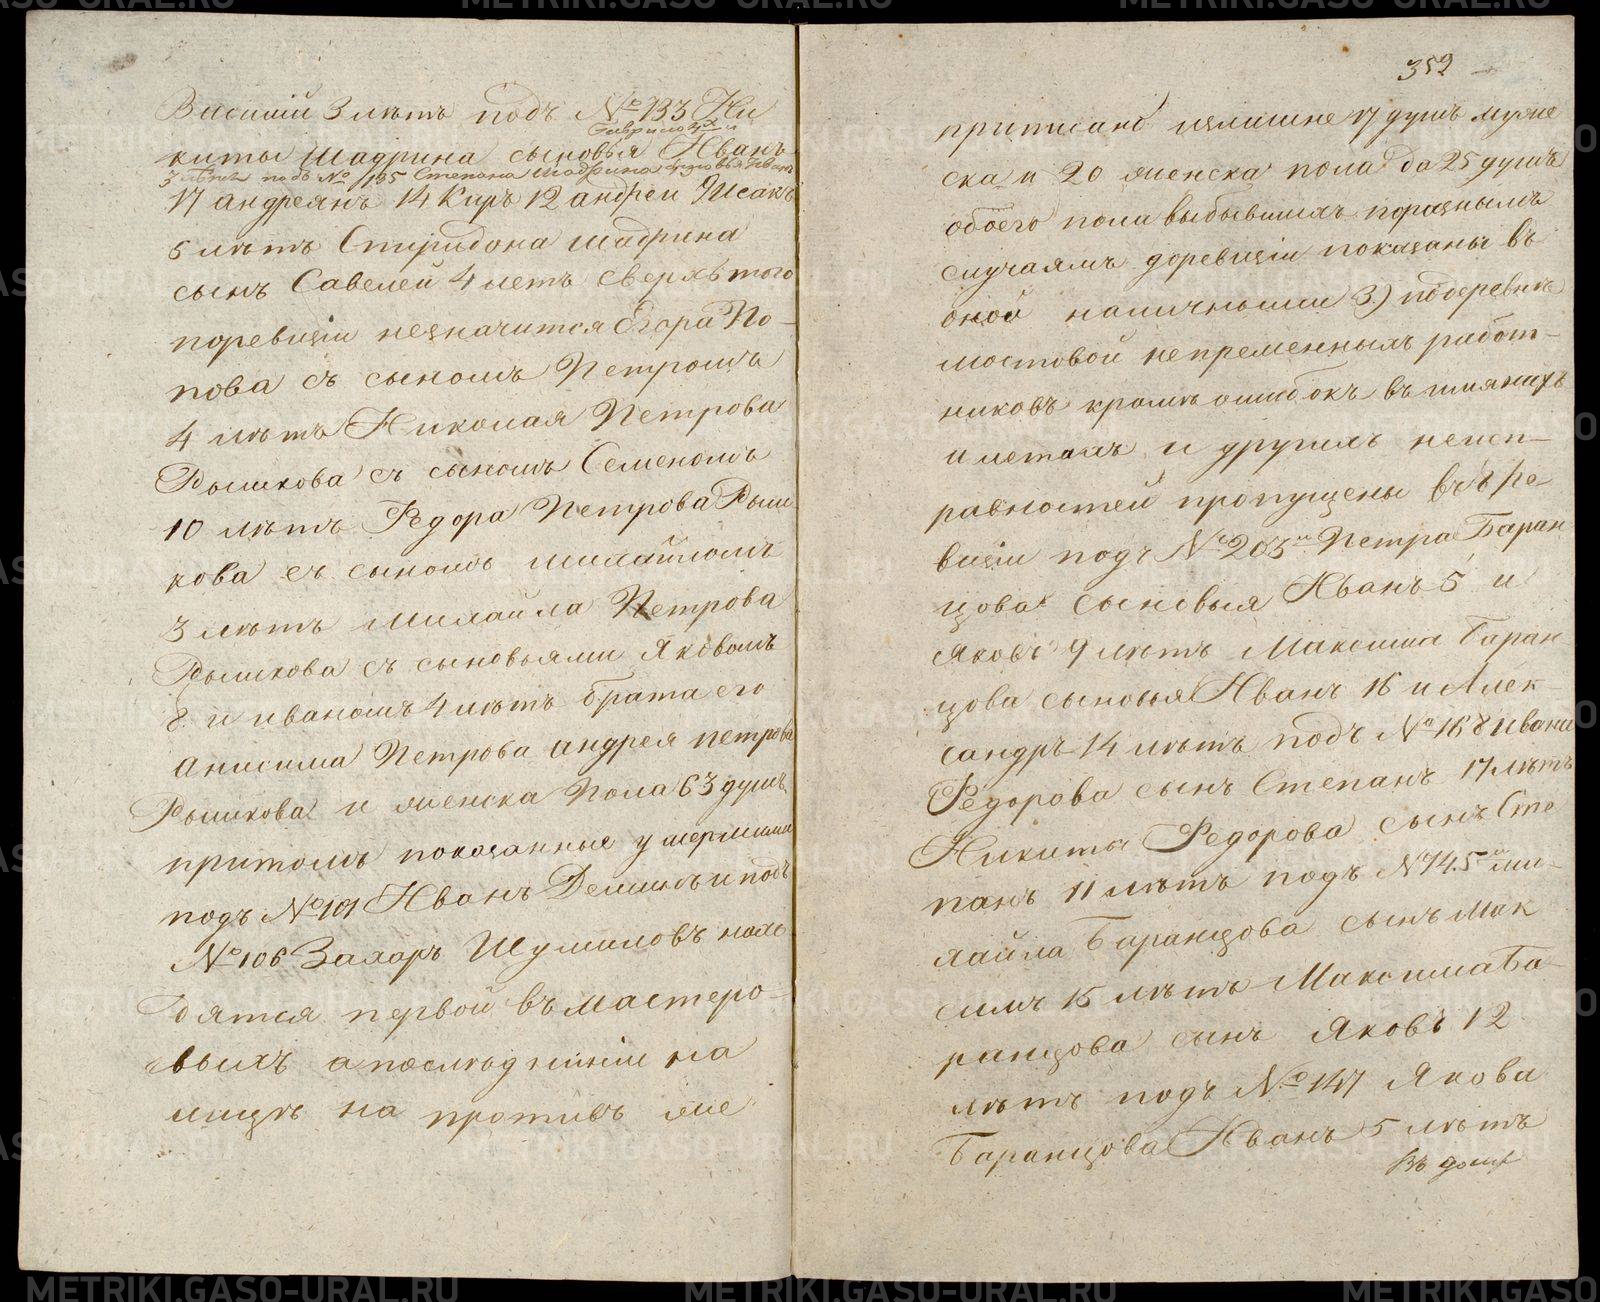 Василий 3 лѣтъ подъ № 133 Ни
киты Шадрина сыновья Гаврило 12 и Иванъ
3 лѣтъ подъ № 135 Степана Шадрина сыновья Иванъ
17 андреянъ 14 Киръ 12 андреи Исакъ
5 лѣтъ Спиридона шадрина
сынъ Савелей 4 летъ сверхъ того
поревизіи незначится Егора По-
пова съ сыномъ Петромъ
4 лѣтъ Николая Петрова
Рышкова съ сыномъ Семеномъ
10 лѣтъ Федора Петрова Рыш
кова съ сыномъ михаиломъ
3 лѣтъ михаила Петрова
Рышкова съ сыновьями Яковомъ
8 и иваномъ 4 лѣтъ брата его
анисима Петрова андрея петрова
Рышкова и женска пола 63 душъ
притомъ показанные умершими
подъ № 101 Иванъ и подъ
№ 106 Захаръ Шумиловъ нахо
дятся первой въ мастеро-
выхъ а последнійи на
лицѣ на противъ же
352
приписано излишне 17 душъ муже
ска и 20 женска пола да 25 душъ
обоего пола выбывшихъ поразнымъ
случаямъ доревизіи показаны въ
оной наличными 3.) подеревнѣ
мостовой непременныхъ работ-
никовъ кромѣ ошибокъ въ имянахъ
и летахъ и другихъ неисп-
равностей пропущены въ Ре-
визіи подъ № 203 м Петра Баран
цова сыновья Иванъ 5 и
яковъ 9 лѣтъ Максима Баран
цова сыновья Иванъ 16 и Алек-
сандръ 14 лѣтъ подъ № 168 ивана
Федорова сынъ Степанъ 17 лѣтъ
Никиты Федорова сынъ Сте
панъ 11 лѣтъ подъ № 145 м ми-
хаила Баранцова сынъ Мак
симъ 15 лѣтъ Максима Ба-
ранцова сынъ яковъ 12
лѣтъ подъ № 147 Якова
Баранцова Иванъ 5 лѣтъ
METRIKI.GASO-URAL.RU